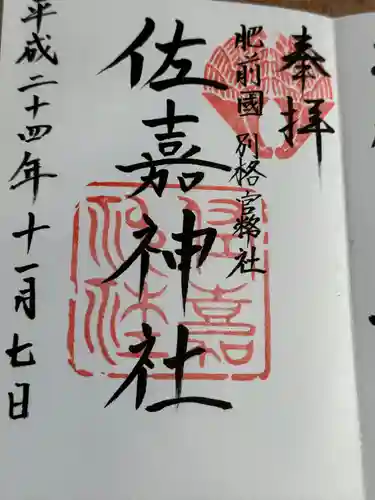 奉拝
肥前國 別格官幣社
佐嘉神社
平成二十四年十一月七日
佐嘉神社